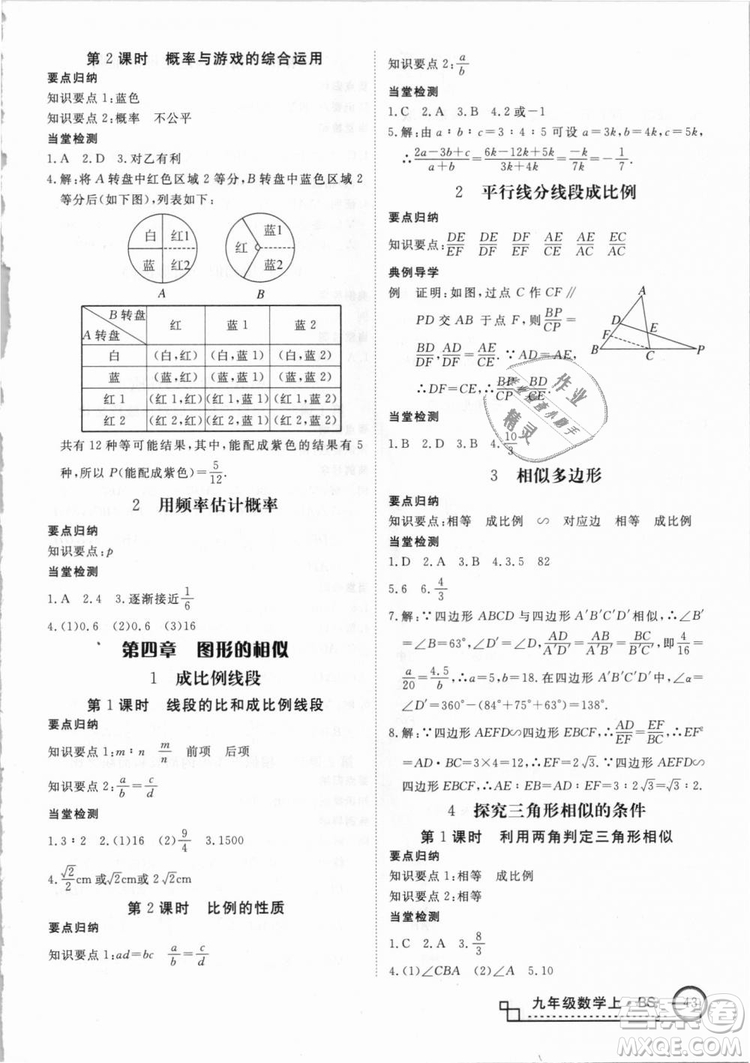 第2课时 概率与游戏的综合运用
要点归纳
知识要点1:蓝色
知识要点2:概率 不公平
当堂检测
1.A 2.D 3.对乙有利
4.解:将A转盘中红色区域2等分,B转盘中蓝色区域2
等分后(如下图),列表如下:
白 红1
蓝 红2
A
红 蓝1
蓝2
B
B转盘 A转盘 红 蓝1 蓝2
白 (白,红) (白,蓝1) (白,蓝2)
蓝 (蓝,红) (蓝,蓝1) (蓝,蓝2)
红1 (红1,红) (红1,蓝1) (红1,蓝2)
红2 (红2,红) (红2,蓝1) (红2,蓝2)
共有12种等可能结果,其中,能配成紫色的结果有5
种,所以P(能配成紫色)=5/12.
2 用频率估计概率
要点归纳
知识要点:p
当堂检测
1.A 2.4 3.逐渐接近1/6
4.(1)0.6 (2)0.6 (3)16
第四章 图形的相似
1 成比例线段
第1课时 线段的比和成比例线段
要点归纳
知识要点1:m∶n m/n 前项 后项
知识要点2:a/b=c/d
当堂检测
1.3∶2 2.(1)16 (2)9/4 3.1500
4.√2/2cm或√2cm或2√2cm
第2课时 比例的性质
知识要点1:ad=bc a/b=c/d
知识要点2:a/b
当堂检测
1.C 2.A 3.B 4.2或-1
5.解:由a∶b∶c=3∶4∶5可设a=3k,b=4k,c=5k,
∴(2a-3b+c)/(a+b)=(6k-12k+5k)/(3k+4k)=-k/7k=-1/7.
2 平行线分线段成比例
要点归纳
知识要点:DE/EF DE/DF AE/EC AC/AE AC/EC
典例导学
例 证明:如图,过点C作CF∥
PD交AB于点F,则BP/CP=
BD/DF,AD/DF=AE/CE.∵AD=AE,
∴DF=CE,∴BP/CP=BD/CE.
A
D E
F
B C P
当堂检测
1.B 2.D 3.A 4.10/3
3 相似多边形
要点归纳
知识要点:相等 成比例 ∽ 对应边 相等 成比例
当堂检测
1.D 2.A 3.B 4.3.5 82
5.6 6.4/3
7.解:∵四边形ABCD与四边形A′B′C′D′相似,∴∠B′
=∠B=63°,∠D=∠D′,AD/A′D′=AB/A′B′=BC/B′C′,即4/16=
a/20=4.5/b,∴a=5,b=18.在四边形A′B′C′D′中,∠α=
∠D′=360°-(84°+75°+63°)=138°.
8.解:∵四边形AEFD∽四边形EBCF,∴AD/EF=EF/BC,∴EF²
=AD·BC=3×4=12,∴EF=2√3.∵四边形AEFD∽四
边形EBCF,∴AE∶EB=AD∶EF=3∶2√3=√3∶2.
4 探究三角形相似的条件
第1课时 利用两角判定三角形相似
要点归纳
知识要点1:相等 成比例
知识要点2:相等
当堂检测
1.C 2.D 3.8/3
4.(1)∠CBA (2)∠CAN 5.10
九年级数学上·BS
作业
精灵
MXQE.COM